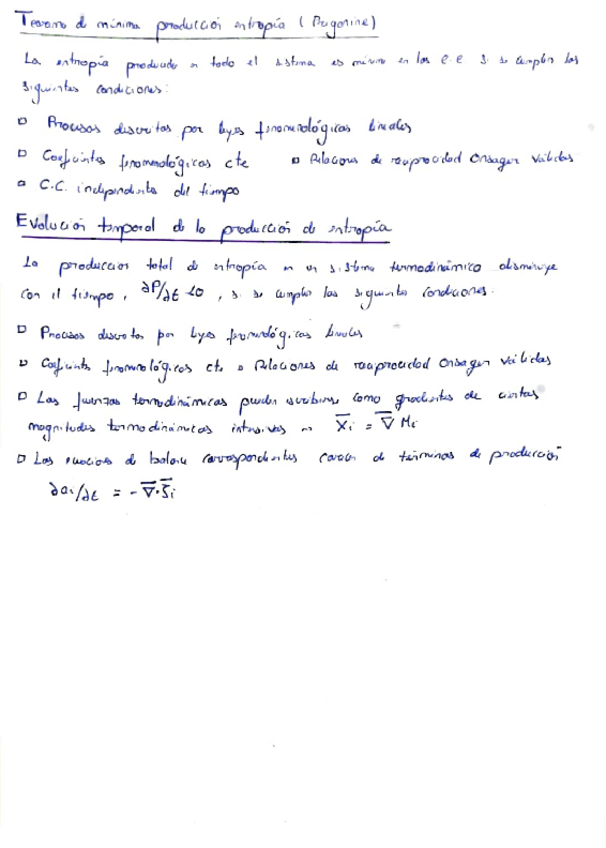 Teorema de mínima producción entropía (Prigonine)
La entropía producida en todo el sistema es mínima en los e.e si se cumplen las
siguientes condiciones:
▫ Procesos descritos por leyes fenomenológicas lineales
▫ Coeficientes fenomenológicos cte ▫ Relaciones de reciprocidad Onsager válidas
▫ C.C. independientes del tiempo
Evolución temporal de la producción de entropía
La producción total de entropía en un sistema termodinámico disminuye
con el tiempo, ∂P/∂t <0, si se cumplen las siguientes condiciones:
▫ Procesos descritos por leyes fenomenológicas lineales
▫ Coeficientes fenomenológicos cte ▫ Relaciones de reciprocidad Onsager válidas
▫ Las fuerzas termodinámicas pueden escribirse como gradientes de ciertas
magnitudes termodinámicas intensivas → X̄i = ∇̄ Mi
▫ Las ecuaciones de balance correspondientes carecen de términos de producción
∂ai/∂t = -∇̄·J̄i